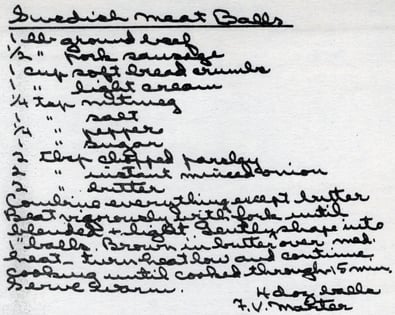 Swedish Meat Balls
1 lb ground beef
1/2 " pork sausage
1 cup soft bread crumbs
1 " light cream
1/4 tsp nutmeg
1 " salt
1/4 " pepper
1 " sugar
2 tbsp chopped parsley
2 " instant minced onion
2 " butter
Combine everything except butter
Beat vigorously with fork until
blended & light. Gently shape into
1" balls. Brown in butter over med.
heat - turn heat low and continue
cooking until cooked through 15 min.
Serve warm.
4 doz balls
F.V.